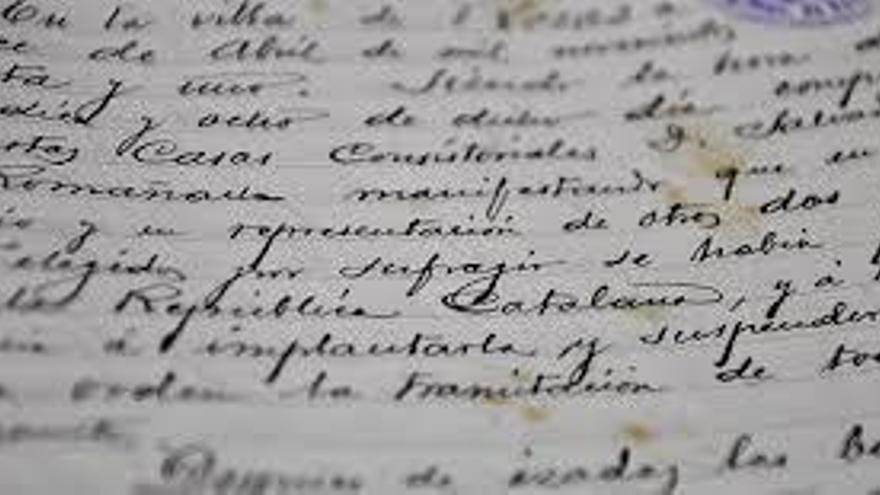 En la villa de
de Abril de mil novecientos
ta y uno. Siendo la hora
y ocho de dicho día
estas Casas Consistoriales D. Salvad
Romañach manifestando que en
y en representación de otros dos
elegidos por sufragio se había
la República Catalana, y á
á implantarla y suspender
orden la tramitación de to
Despues de izadas las ba